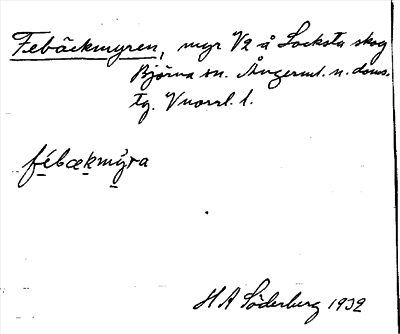 Febäckmyren, myr V2 å Locksta skog
Björna sn. Ångerml. n. doms.
tg. Vnorrl. l.
fébækmyra
H A Söderberg 1932